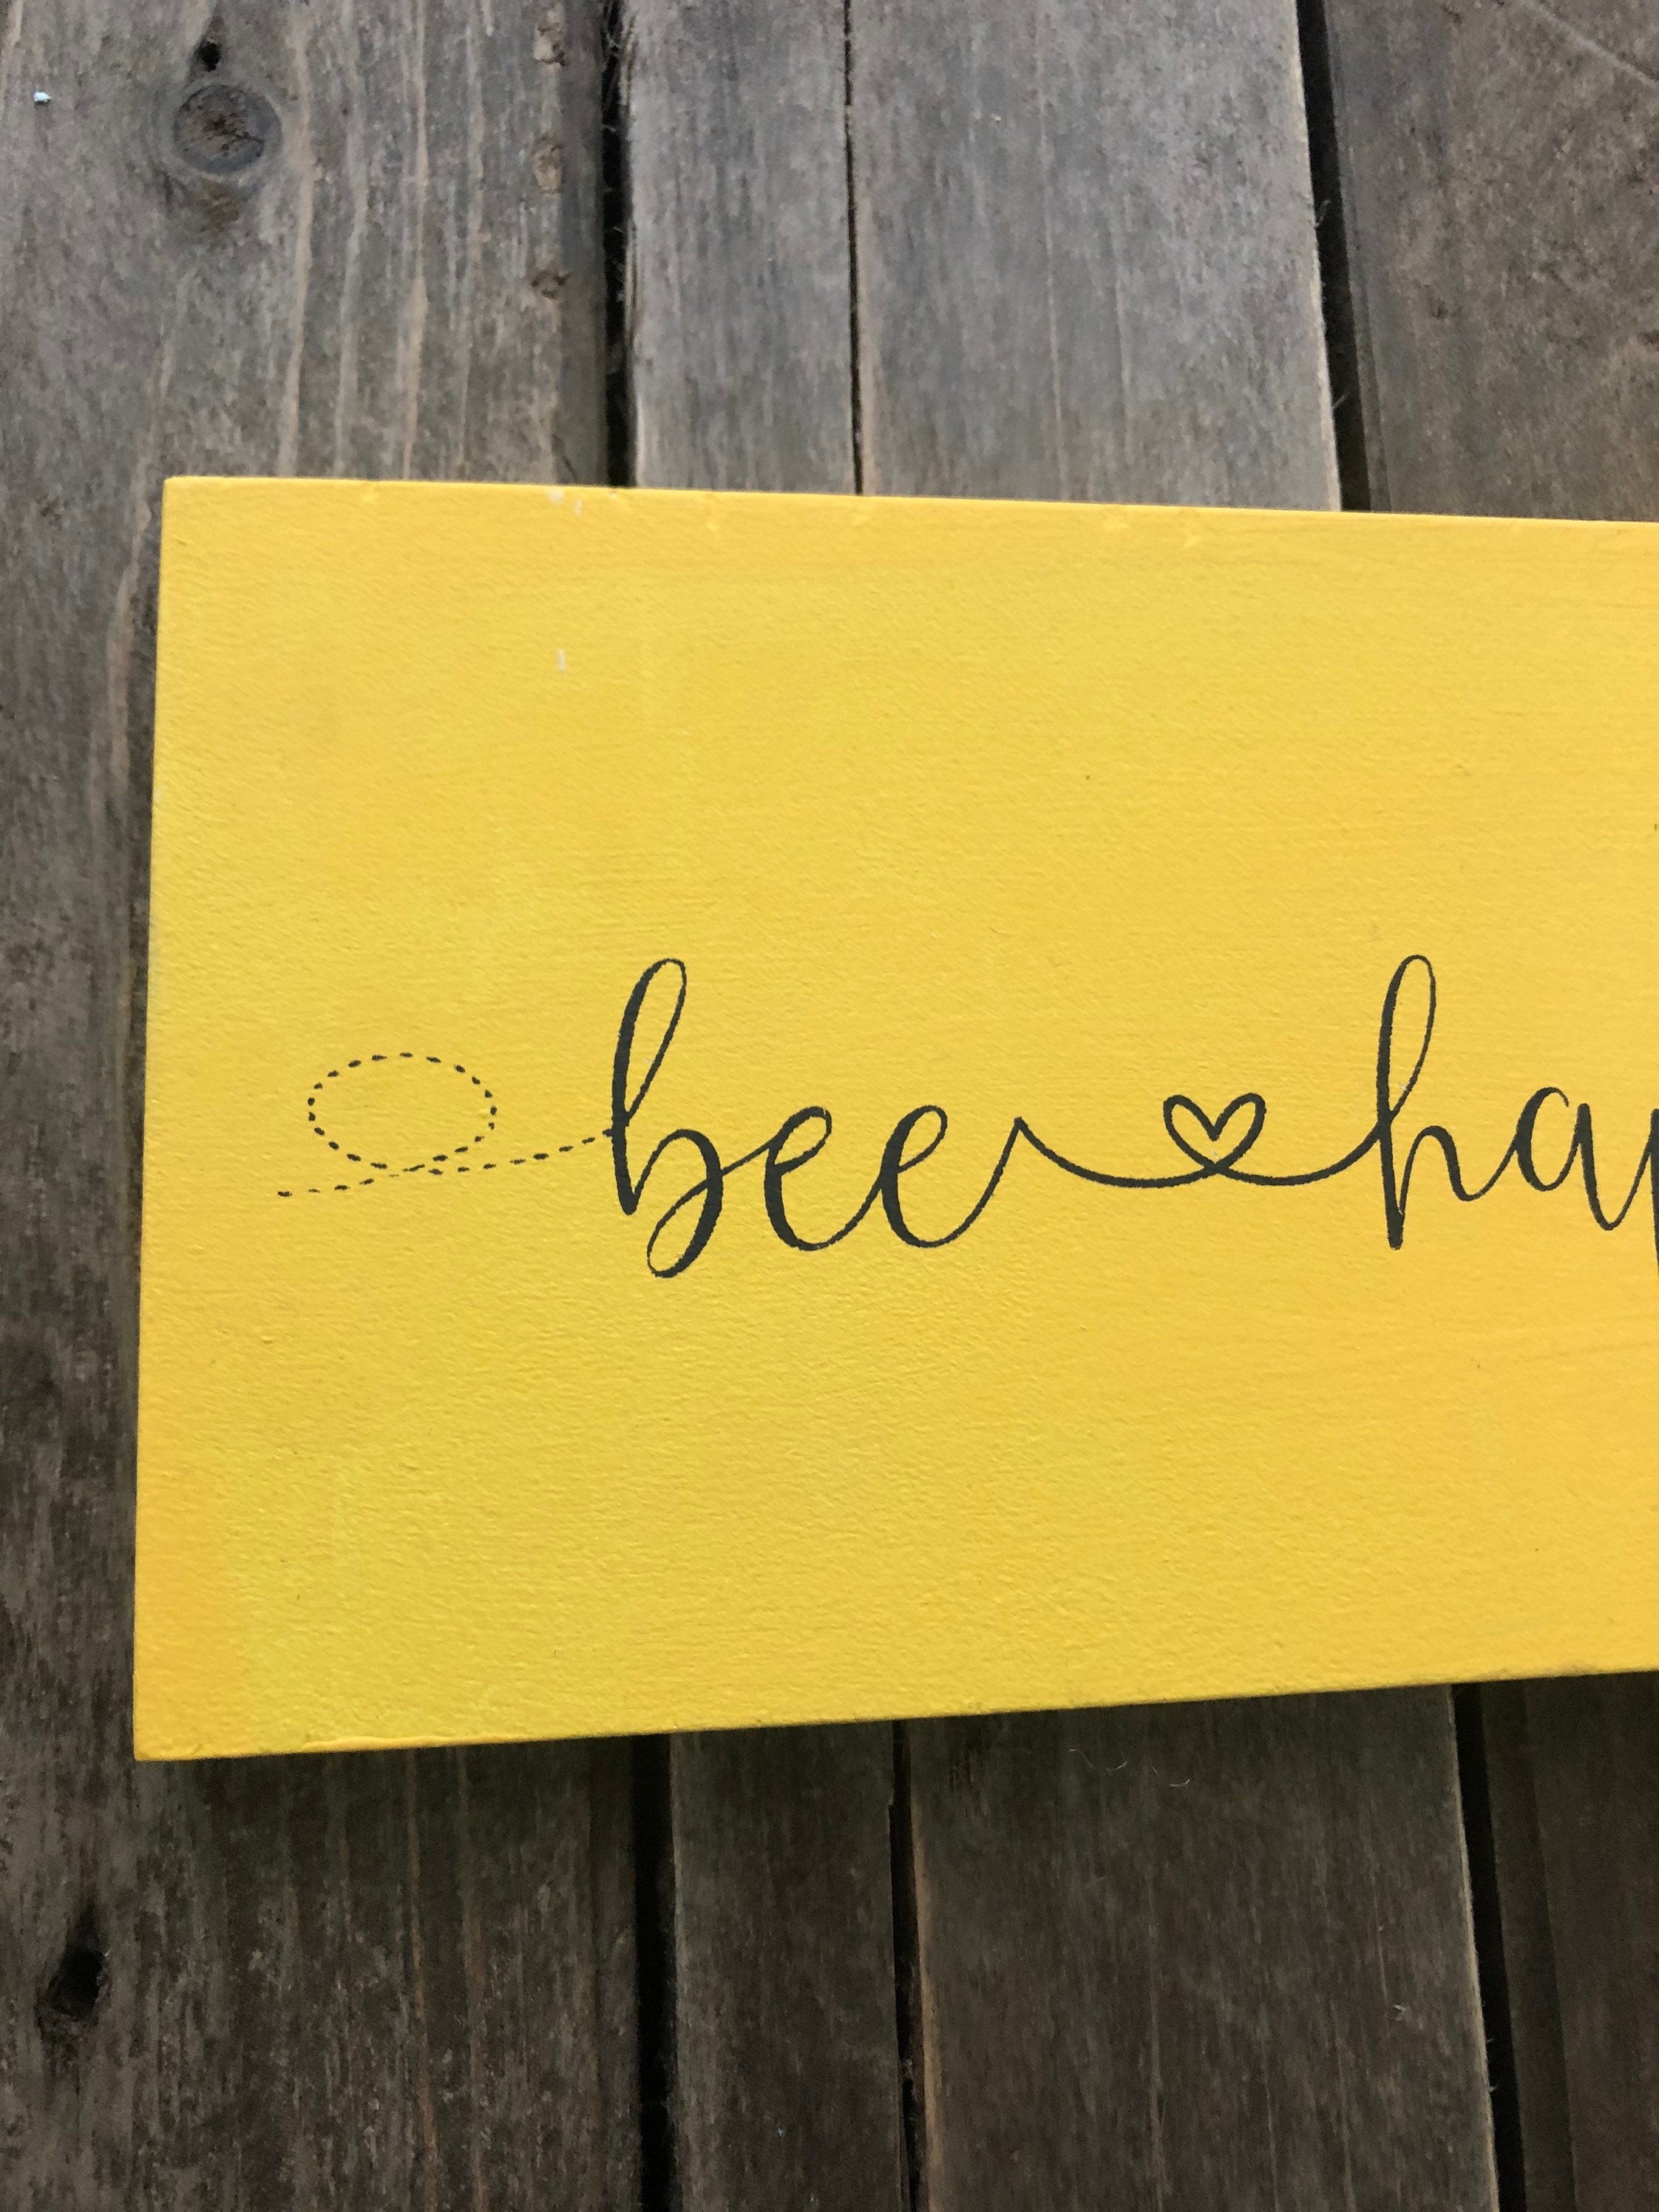 bee hap